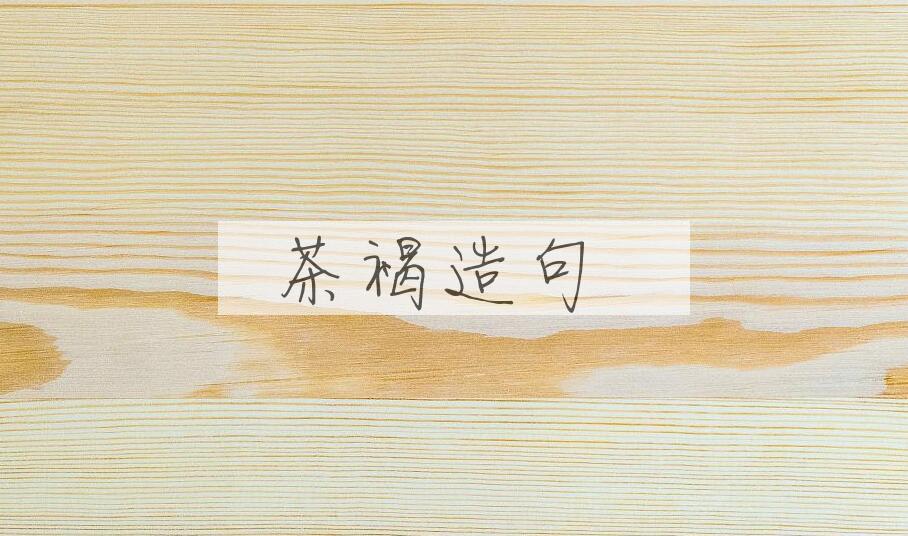 茶褐造句